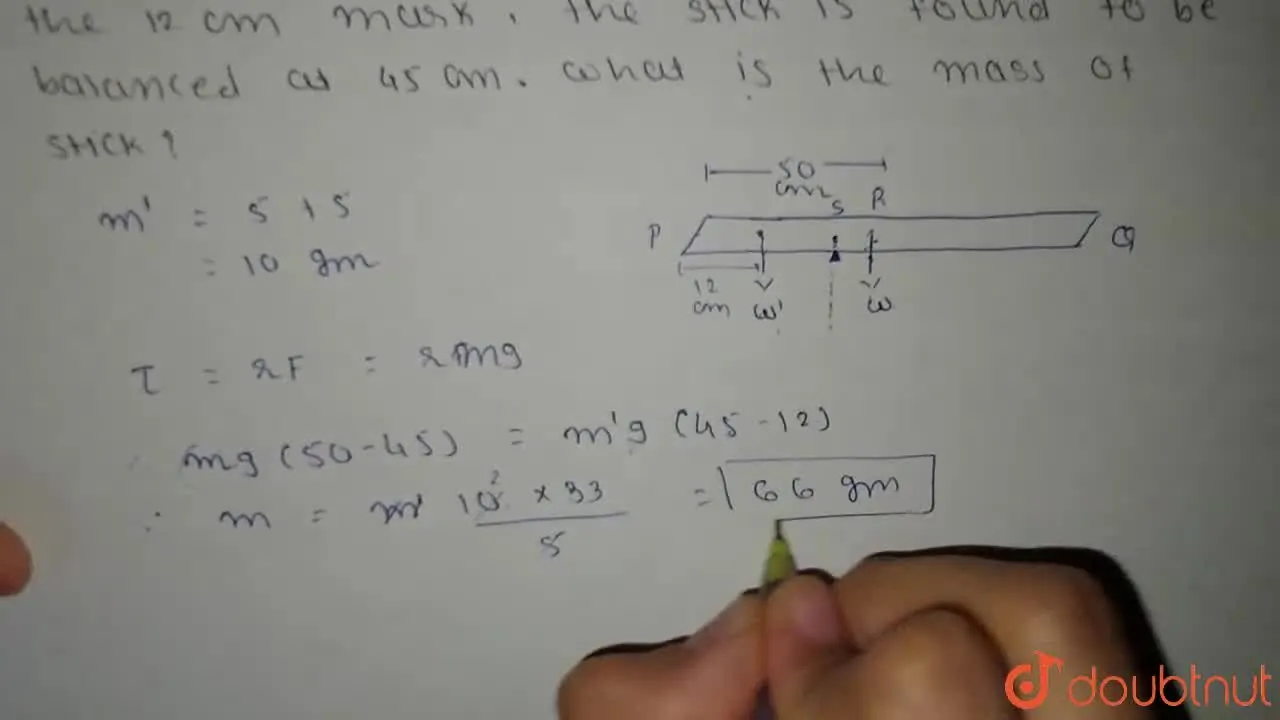 the 12 cm mark, the stick is found to be
balanced at 45 cm. what is the mass of
stick?
50
cm
S R
P Q
12
cm
w' w
m' = 5 + 5
= 10 gm
τ = rF = rmg
mg (50-45) = m'g (45-12)
∴ m = 10 × 33 = 66 gm
2
5
doubtnut